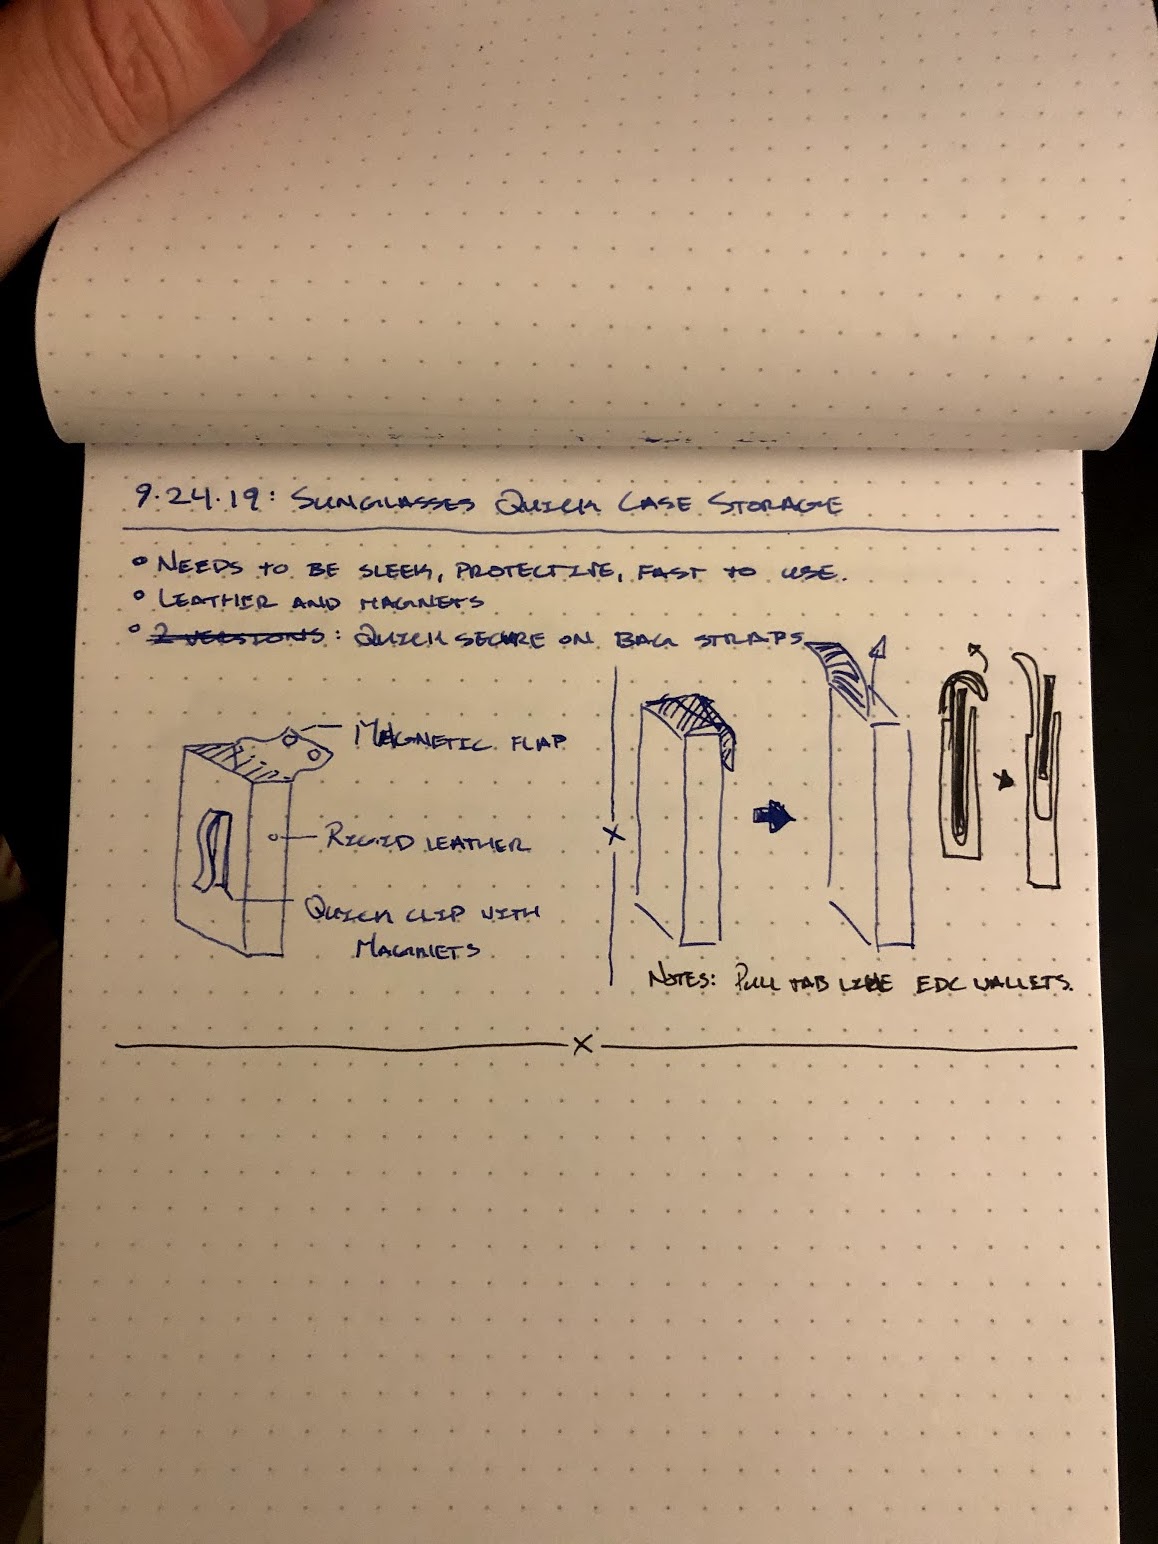 9.24.19: SUNGLASSES QUICK CASE STORAGE
° NEEDS TO BE SLEEK, PROTECTIVE, FAST TO USE.
° LEATHER AND MAGNETS
° 2 VERSIONS: QUICK SECURE ON BAG STRAPS
MAGNETIC FLAP
RIGID LEATHER
QUICK CLIP WITH
MAGNETS
NOTES: PULL TAB LIKE EDC WALLETS.